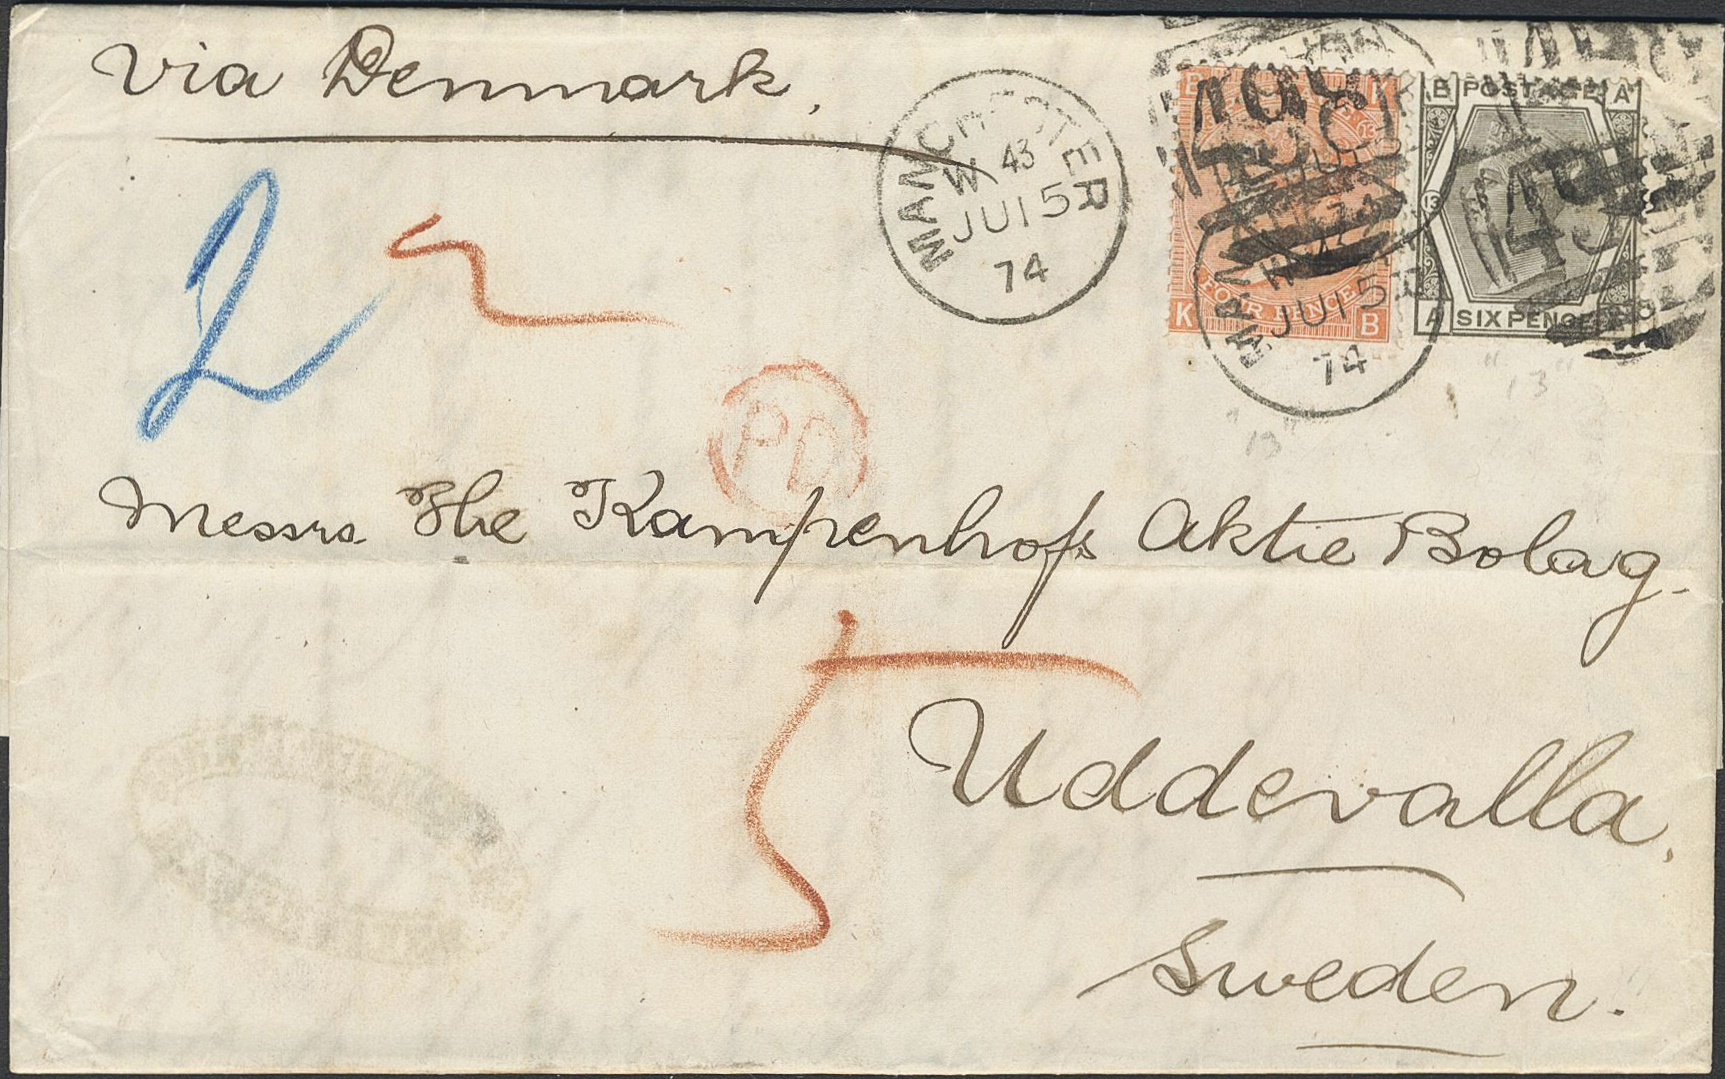 Via Denmark,
MANCHESTER
W 43
JU 15
74
498
B POSTAGE A
13
498
FOUR PENCE
K B
A SIX PENCE
MAN
W
JU 15
74
"13"
"13"
2
PD
Messrs The Kampenhofs Aktie Bolag.
5
Uddevalla.
Sweden.